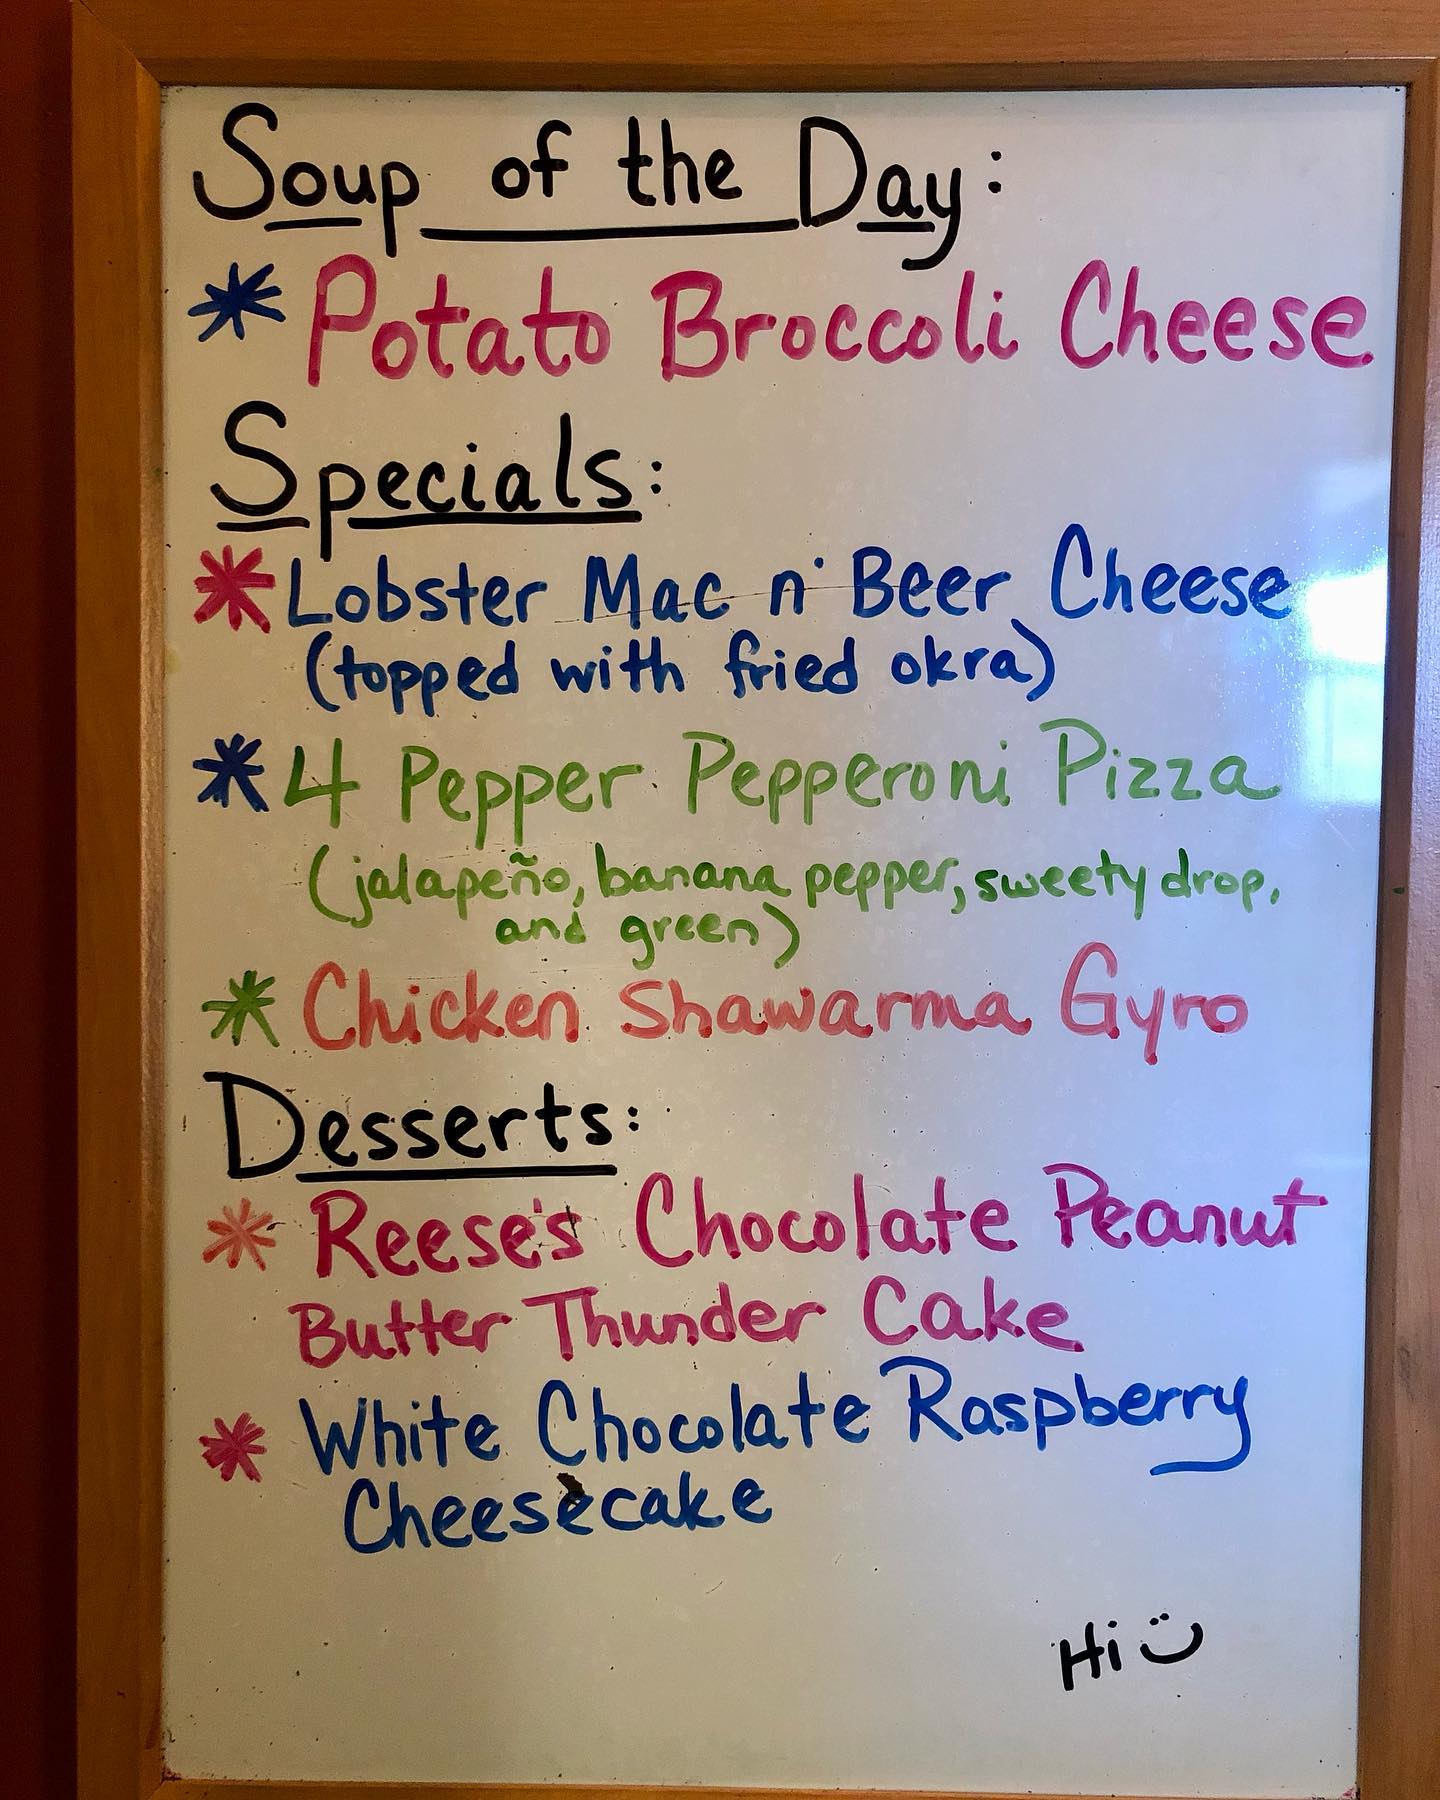 Soup of the Day:
* Potato Broccoli Cheese
Specials:
* Lobster Mac n' Beer Cheese
(topped with fried okra)
* 4 Pepper Pepperoni Pizza
(jalapeño, banana pepper, sweety drop,
and green)
* Chicken Shawarma Gyro
Desserts:
* Reese's Chocolate Peanut
Butter Thunder Cake
* White Chocolate Raspberry
Cheesecake
Hi